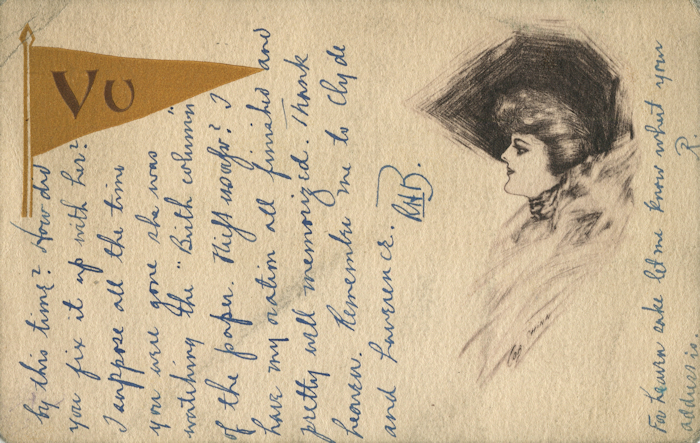 VU
by this time? How did
you fix it up with her?
I suppose all the time
you were gone she was
watching the "Birth column"
of the paper. Huh? I
have my oration all finished and
pretty well memorized. Thank
heaven. Remember me to Clyde
and Lawrence. RHB.
For heaven sake let me know what your
address is. R